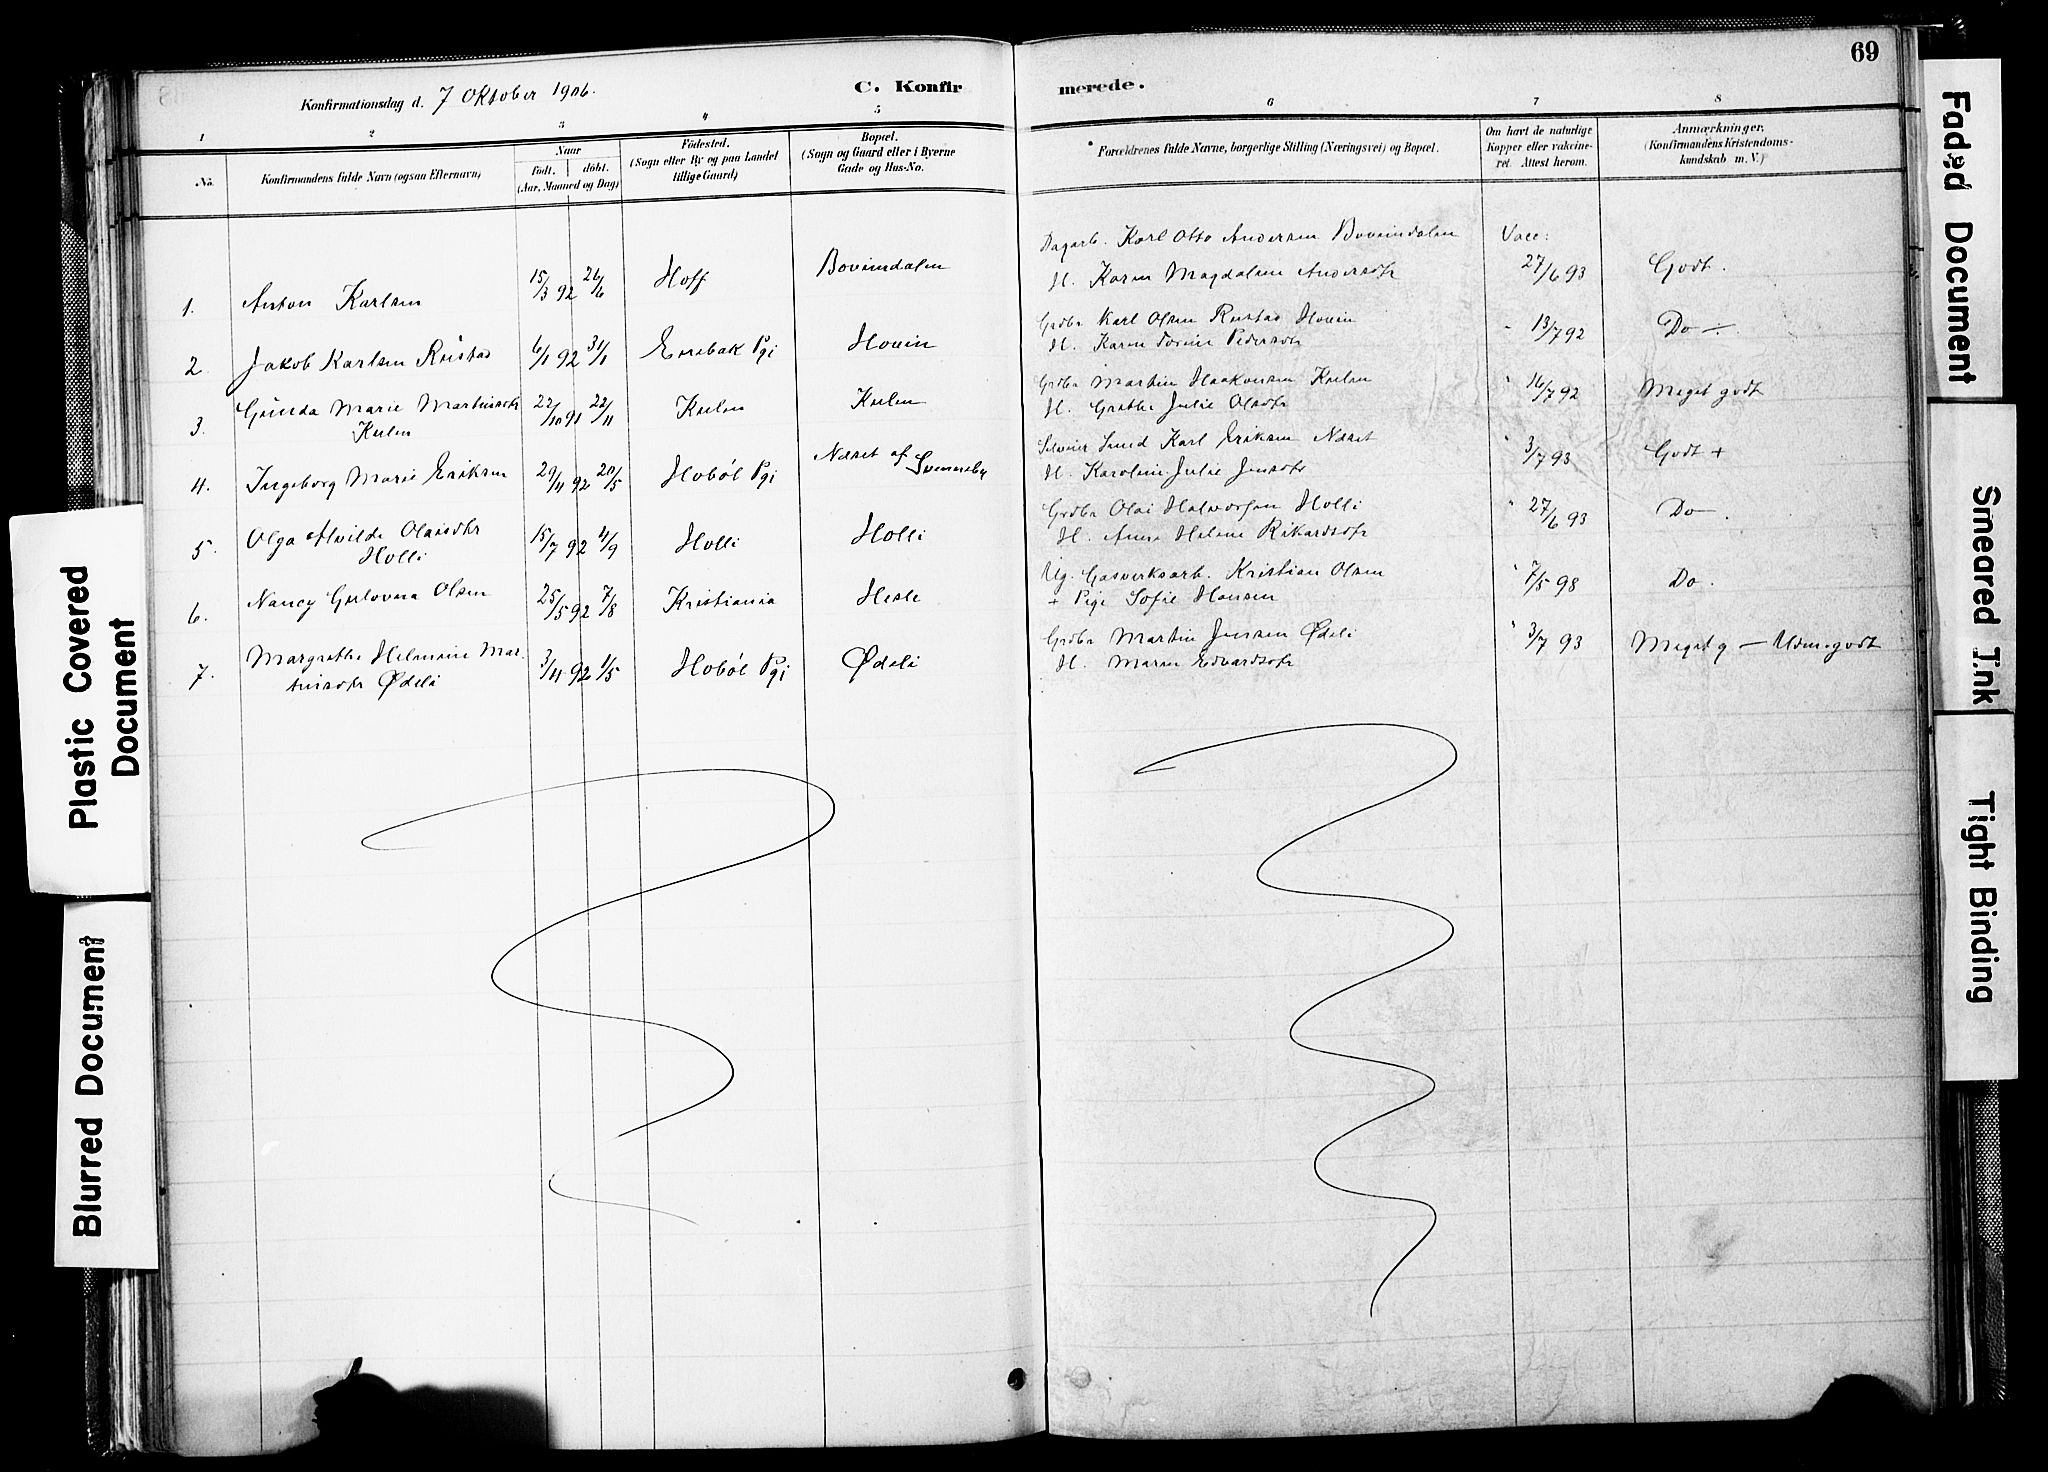 69
Konfirmationsdag d. 7 Oktober 1906.
C. Konfir
merede.
1 2 3 4 5 6 7 8
No.
Konfirmandens fulde Navn (ogsaa Efternavn)
Naar
født. døbt.
(Aar, Maaned og Dag)
Fødested.
(Sogn eller By og paa Landet
tillige Gaard)
Bopæl.
(Sogn og Gaard eller i Byerne
Gade og Hus-No.
Forældrenes fulde Navne, borgerlige Stilling (Næringsvei) og Bopæl.
Om havt de naturlige
Kopper eller vakcine-
ret. Attest herom.
Anmærkninger.
(Konfirmandens Kristendoms-
kundskab m. V.)
Dagarb. Karl Otto Andersen Bovimdalen Vacc:
1. Anton Karlsen 15/3 92 26/6 Hoff Bovimdalen H. Karen Magdalene Andersdtr 27/6 93 Godt.
Grdbr Karl Olsen Rustad Houin
2. Jakob Karlsen Rustad 6/1 92 31/1 Enebak Pgj Houin H. Karen Torine Pedersdtr " 13/7 92 Do ÷
Grdbr Martin Haakonsen Kulen
3. Gunda Marie Martinsdtr 22/10 91 22/11 Kulen Kulen H. Grethe Julie Olsdtr " 16/7 92 Meget godt
Kulen
Karl Eriksen Næset
4. Ingeborg Marie Eriksen 29/4 92 20/5 Hobøl Pgj Næset af H. Karoline Julie Jensdtr " 3/7 93 Godt +
Grdbr Olai Halvorsen Holli
5. Olga Alvilde Olaisdtr 15/7 92 4/9 Holli Holli H. Anne Helene Rikardsdtr " 27/6 93 Do.
Holli
Ug. Gasverksarb. Kristian Olsen
6. Nancy Gulovna Olsen 25/5 92 7/8 Kristiania Hesle + Pige Sofie Hansen " 7/5 98 Do.
Grdbr Martin Jensen Ødeli
7. Margrethe Helmine Mar- 3/4 92 1/5 Hobøl Pgj Ødeli H. Maren Edvardsdtr " 3/7 93 Meget g — Udm. godt
tinsdtr Ødeli
Plastic Covered
Document
Blurred Document
Faded Document
Smeared Ink
Tight Binding